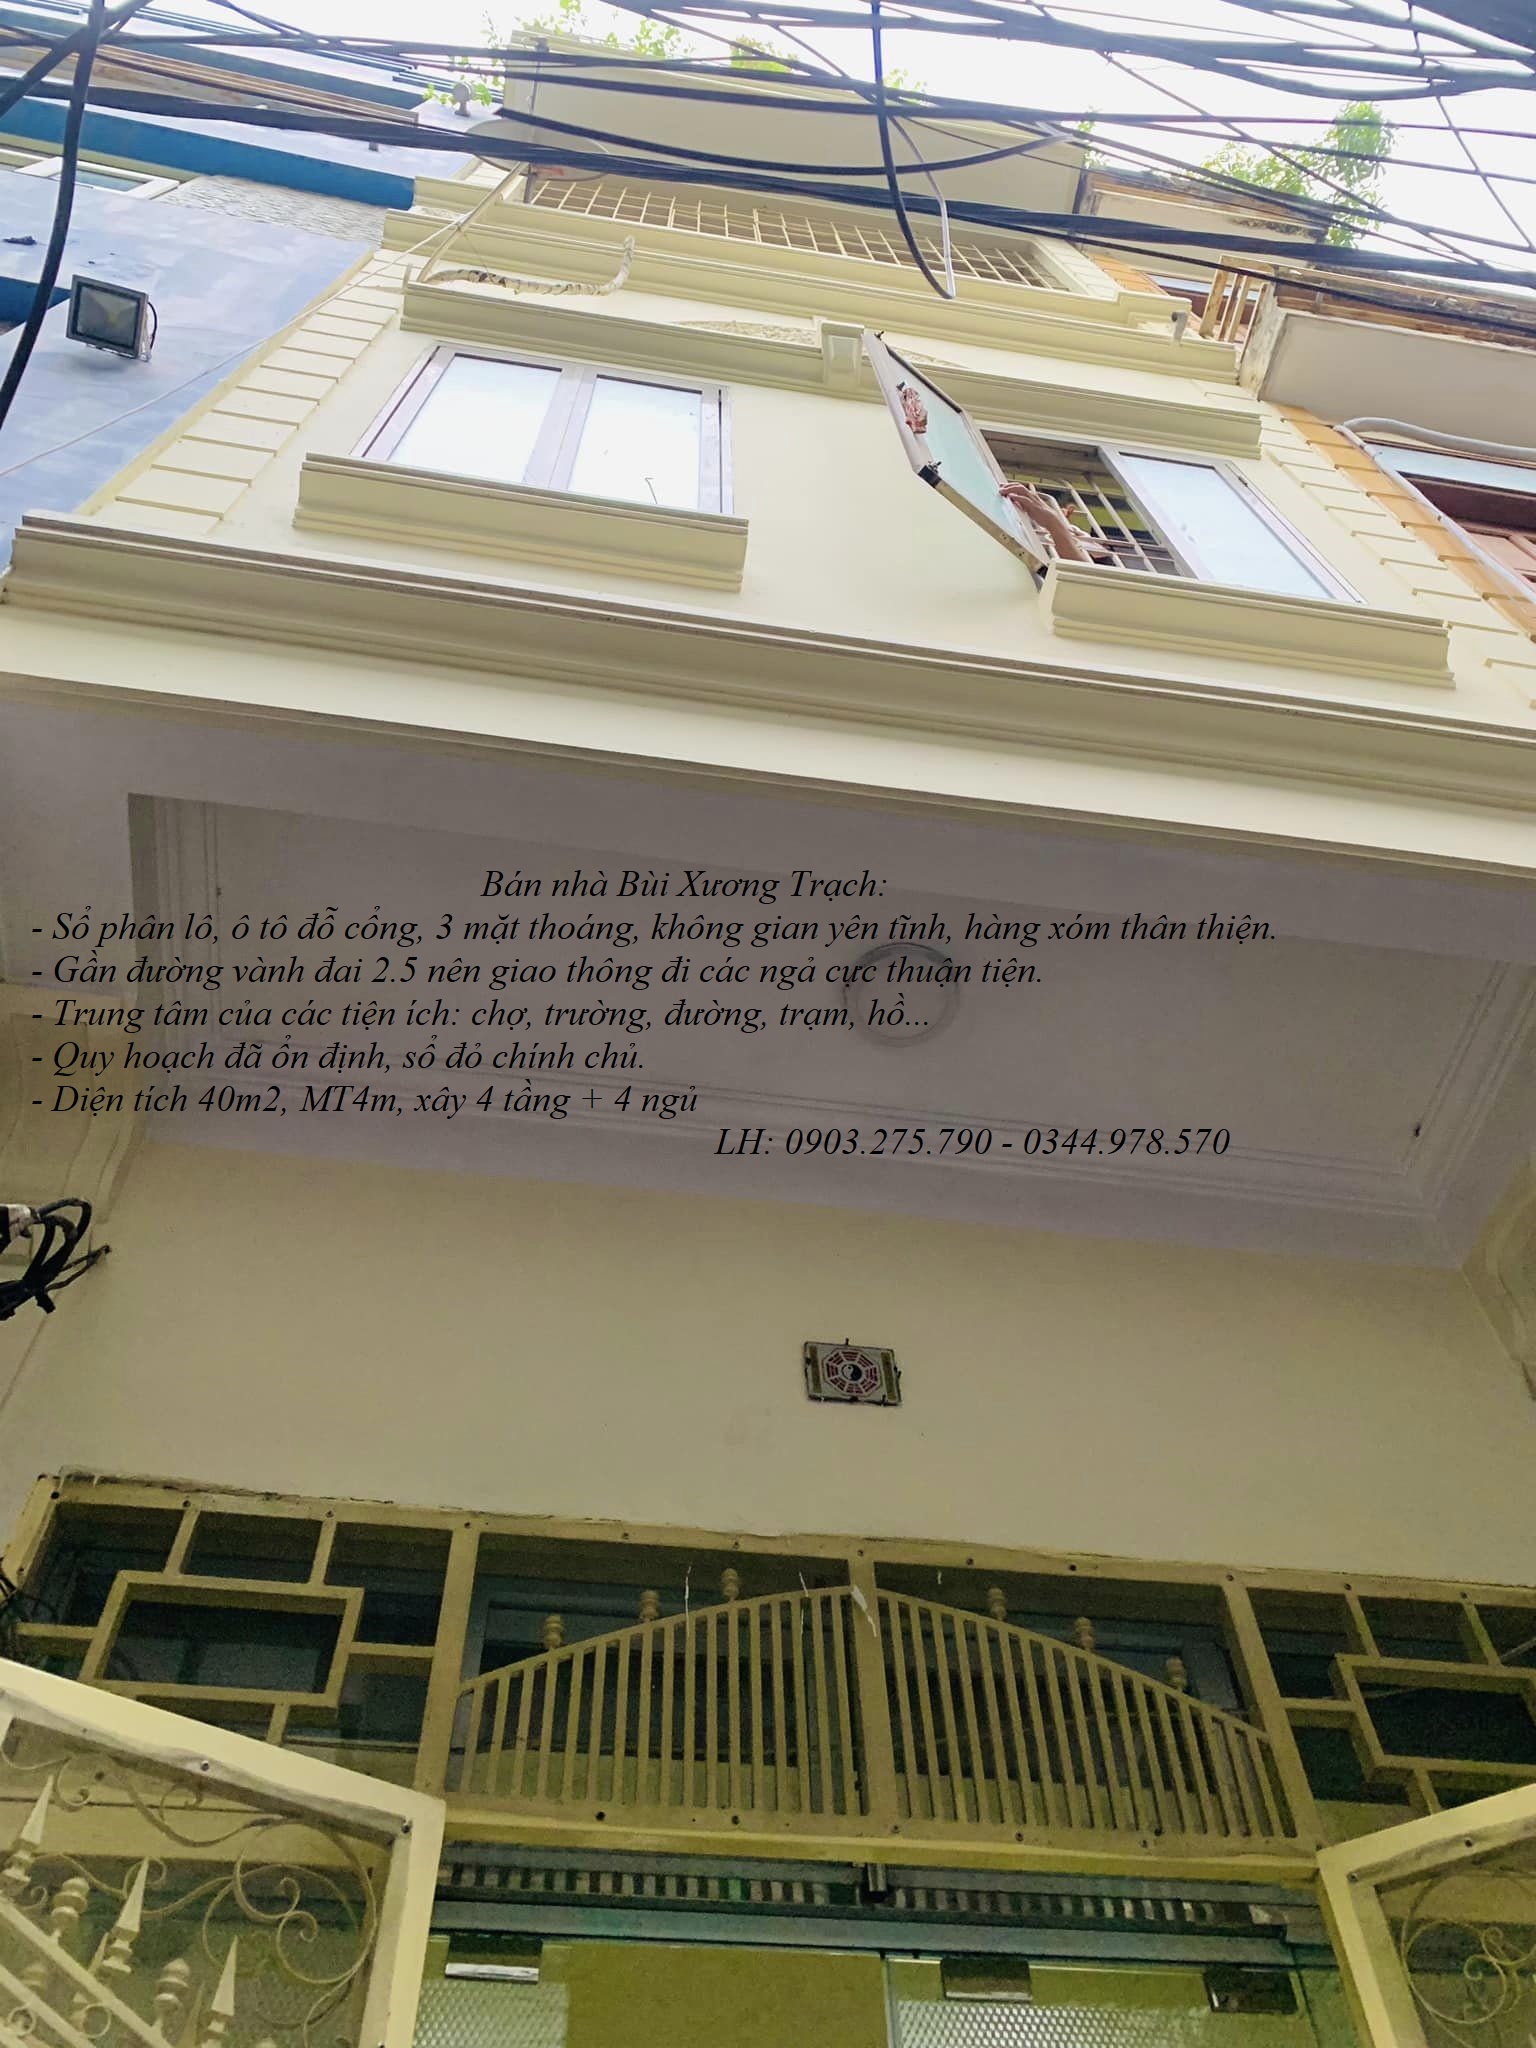 Bán nhà Bùi Xương Trạch:
- Sổ phân lô, ô tô đỗ cổng, 3 mặt thoáng, không gian yên tĩnh, hàng xóm thân thiện.
- Gần đường vành đai 2.5 nên giao thông đi các ngả cực thuận tiện.
- Trung tâm của các tiện ích: chợ, trường, đường, trạm, hồ...
- Quy hoạch đã ổn định, sổ đỏ chính chủ.
- Diện tích 40m2, MT4m, xây 4 tầng + 4 ngủ
LH: 0903.275.790 - 0344.978.570